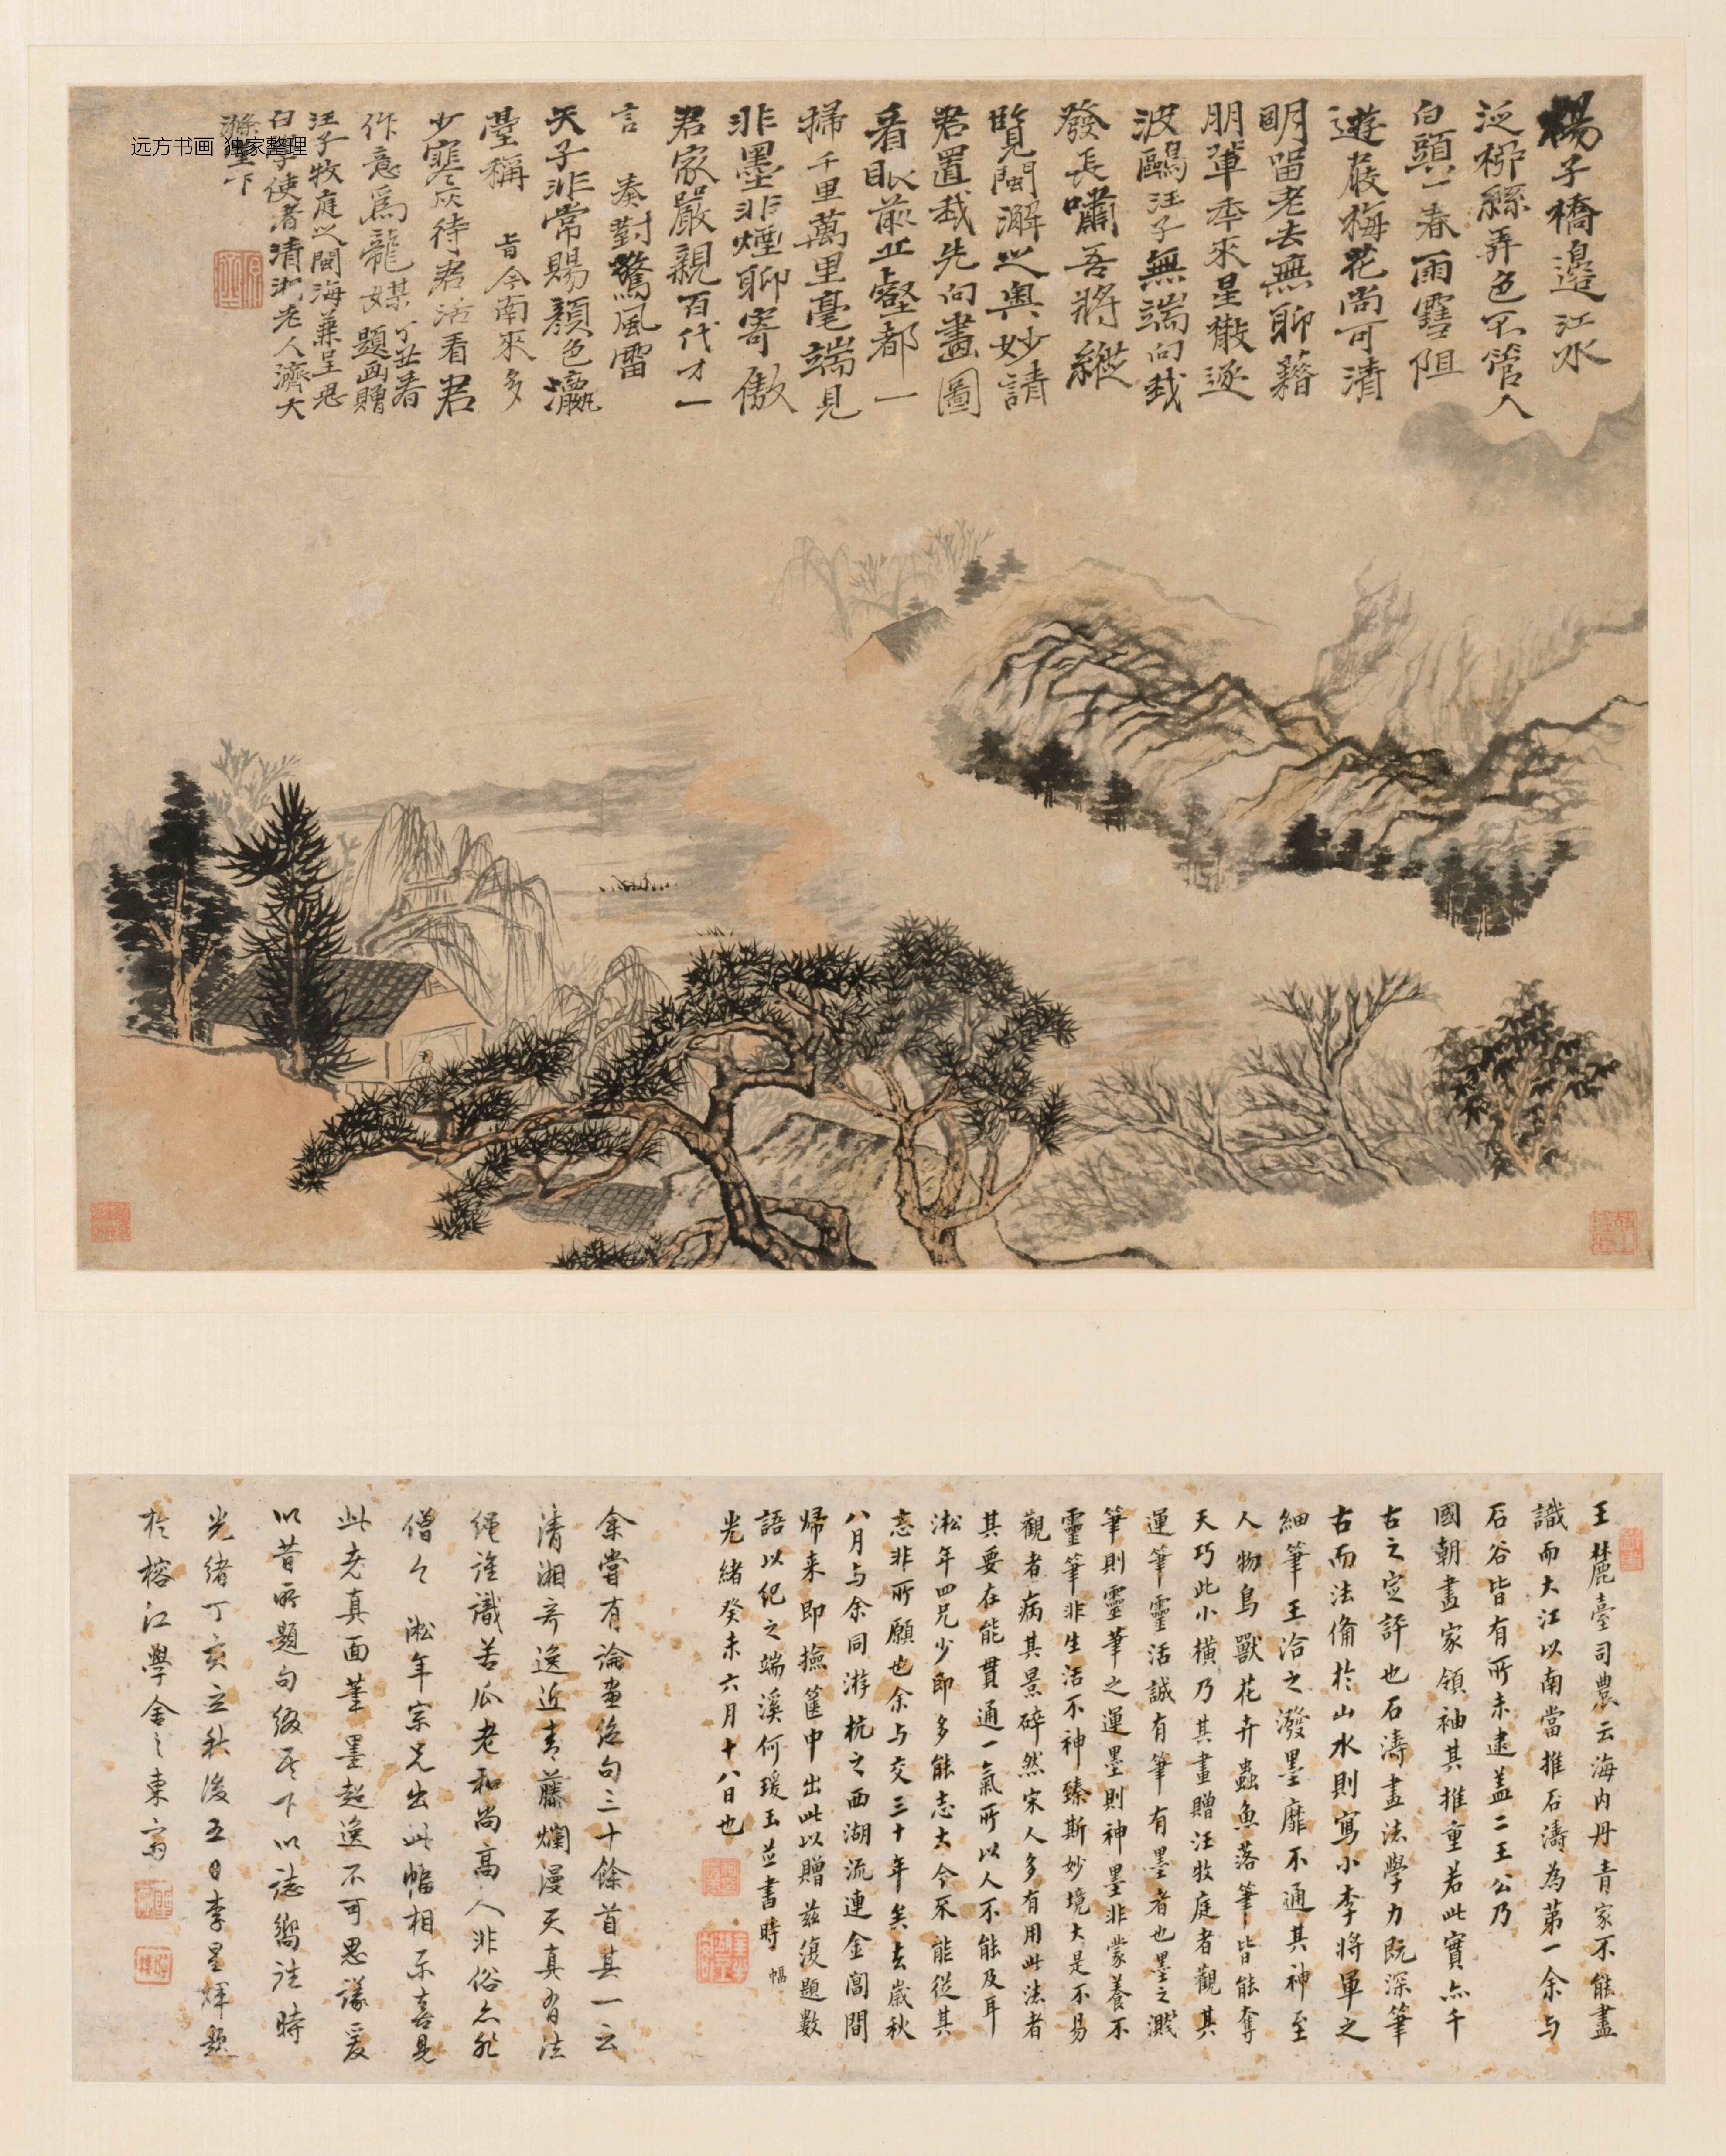 楊子橋邊江水
泛柳絲弄色不管人
白頭一春雨雪阻
遊屐梅花尚可清
明留老去無聊藉
朋輩年來星散逐
波鷗汪子無端向我
發長嘯吾將縱
覽閩澥之奧妙請
君置我先向畫圖
看眼前丘壑都一
掃千里萬里毫端見
非墨非煙聊寄傲
君家嚴親百代才一
言奏對驚風雷
天子非常賜顏色瀛
臺稱旨今南來多
少寒灰待君活看君
作意為龍媒丁丑春題畫贈
汪子牧庭之閩海兼呈思
白學使者清湘老人濟大
滌堂下
远方书画-独家整理
王麓臺司農云海內丹青家不能盡
識而大江以南當推石濤為第一余與
石谷皆有所未逮蓋二王公乃
國朝畫家領袖其推重若此實為千
古之定評也石濤畫法學力既深筆
古而法備於山水則寫小李將軍之
細筆王洽之潑墨靡不通其神至
人物鳥獸花卉蟲魚落筆皆能奪
天巧此小橫乃其畫贈汪牧庭者觀其
運筆靈活誠有筆有墨者也墨之濺
筆則靈筆之運墨則神墨非蒙養不
靈筆非生活不神臻斯妙境大是不易
觀者病其景碎然宋人多有用此法者
其要在能貫通一氣所以人不能及耳
淞年四兄少即多能志大今不能從其
志非所願也余與交三十年矣去歲秋
八月与余同游杭之西湖流連金閶間
歸來即撿篋中出此以贈茲復題數
語以紀之端溪何瑗玉並書時
幅
光緒癸未六月十八日也
余嘗有論畫絕句三十餘首其一云
清湘奇逸近青藤爛漫天真有法
繩誰識苦瓜老和尚高人非俗亦非
僧今淞年宗兄出此幅相示喜見
此老真面筆墨超逸不可思議爰
以昔所題句綴於下以誌嚮往時
光緒丁亥立秋後五日李星煇題
於榕江學舍之東齋